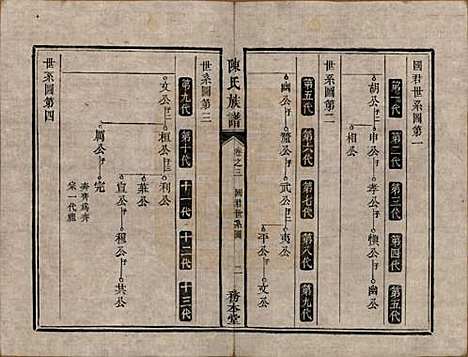 國君世系圖第一
第一代 第二代 第三代 第四代 第五代
胡公 申公 孝公 慎公 幽公
相公
世系圖第二
第五代 第六代 第七代 第八代 第九代
幽公 釐公 武公 夷公
平公 文公
陳氏族譜 卷之三 國君世系圖 二 務本堂
世系圖第三
第九代 第十代 十一代 十二代 十三代
文公 桓公 利公
莊公
宣公 穆公 共公
厲公 完
奔齊爲齊
世系圖第四